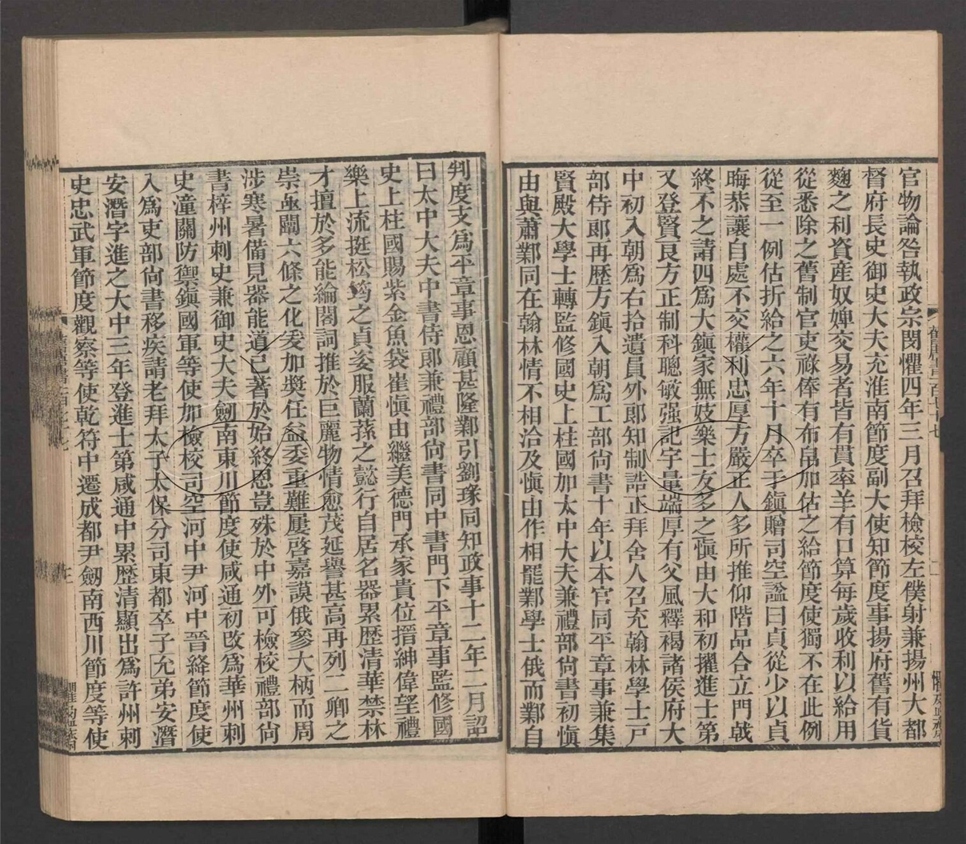 官物論咎執政宗閔懼四年三月召拜檢校左僕射兼揚州大都
督府長史御史大夫充淮南節度副大使知節度事揚府舊有貨
麴之利資產奴婢交易者皆有貫率羊有口算每歲收利以給用
從悉除之舊制官吏祿俸有布帛加估之給節度使獨不在此例
從至一例估折給之六年十月卒于鎮贈司空諡曰貞從少以貞
晦恭讓自處不交權利忠厚方嚴正人多所推仰階品合立門戟
終不之請四爲大鎮家無妓樂士友多之愼由大和初擢進士第
又登賢良方正制科聰敏强記宇量端厚有父風釋褐諸侯府大
中初入朝爲右拾遺員外郎知制誥正拜舍人召充翰林學士戶
部侍郎再歷方鎮入朝爲工部尙書十年以本官同平章事兼集
賢殿大學士轉監修國史上柱國加太中大夫兼禮部尙書初愼
由與蕭鄴同在翰林情不相洽及愼由作相罷鄴學士俄而鄴自
判度支爲平章事恩顧甚隆鄴引劉瑑同知政事十二年二月詔
曰太中大夫中書侍郎兼禮部尙書同中書門下平章事監修國
史上柱國賜紫金魚袋崔愼由繼美德門承家貴位搢紳偉望禮
樂上流挺松筠之貞姿服蘭蓀之懿行自居名器累歷淸華禁林
才擅於多能綸閣詞推於巨麗物情愈茂延譽甚高再列二卿之
崇亟闡六條之化爰加奬任益委重難屢啓嘉謨俄參大柄而周
涉寒暑備見器能道已著於始終恩豈殊於中外可檢校禮部尙
書梓州刺史兼御史大夫劍南東川節度使咸通初改爲華州刺
史潼關防禦鎮國軍等使加檢校司空河中尹河中晉絳節度使
入爲吏部尙書移疾請老拜太子太保分司東都卒子允弟安潛
安潛字進之大中三年登進士第咸通中累歷淸顯出爲許州刺
史忠武軍節度觀察等使乾符中遷成都尹劍南西川節度等使